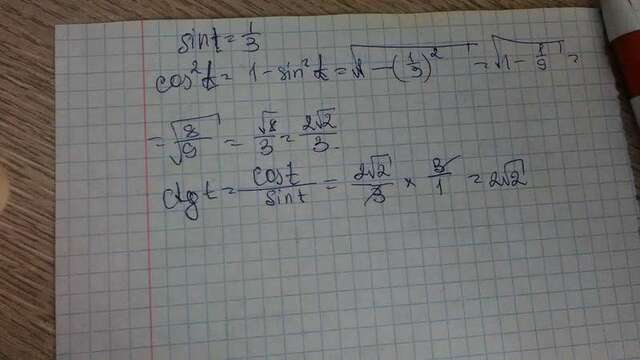 sint = 1/3
cos²t = 1 - sin²t = √(1 - (1/3)²) = √(1 - 1/9) =
= √(8/9) = √8/3 = 2√2/3
ctgt = cost/sint = 2√2/3 × 3/1 = 2√2